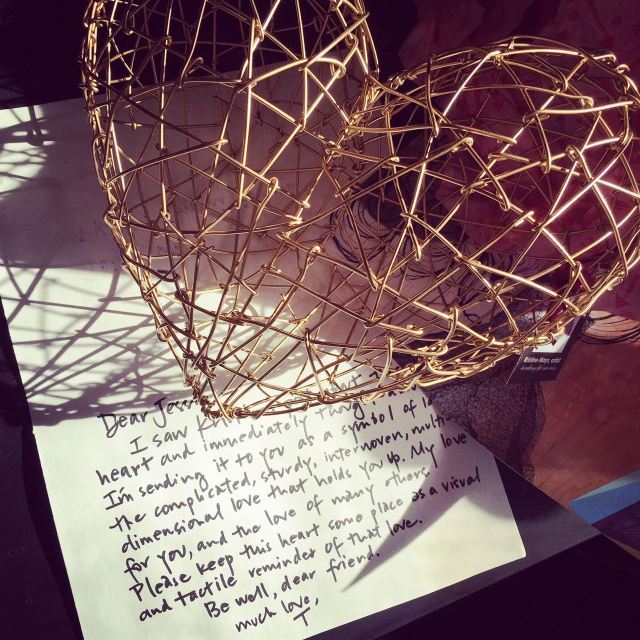 Dear Jess
I saw
heart and immediately
I'm sending it to you as a symbol of
the complicated, sturdy, interwoven, multi-
dimensional love that holds you up. My love
for you, and the love of many others.
Please keep this heart some place as a visual
and tactile reminder of that love.
Be well, dear friend.
much love,
T